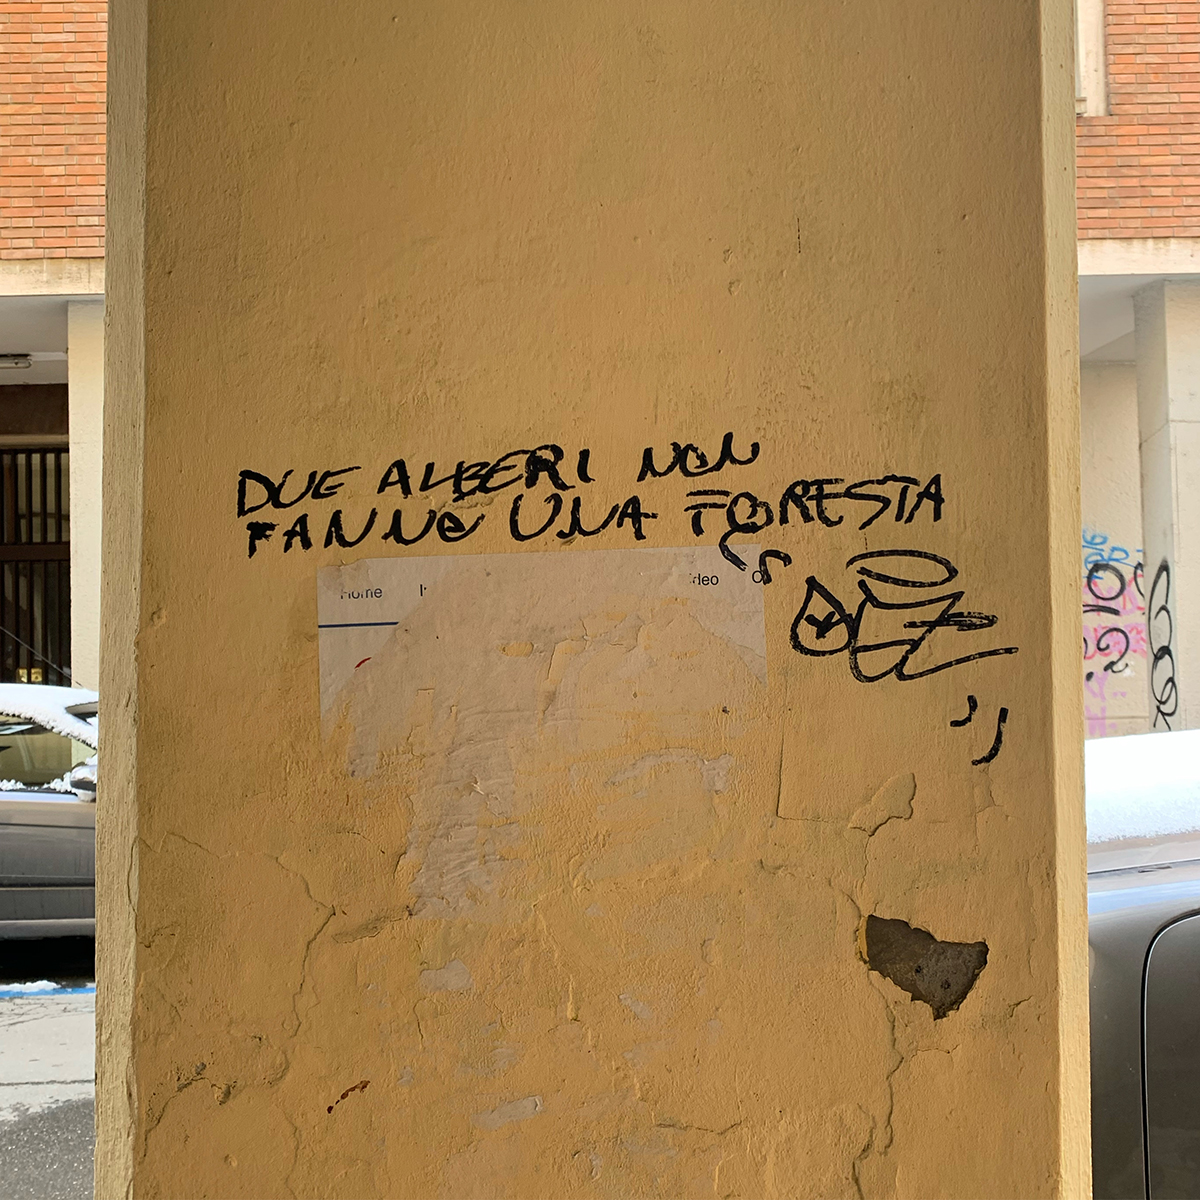 DUE ALBERI NON
FANNO UNA FORESTA
Home